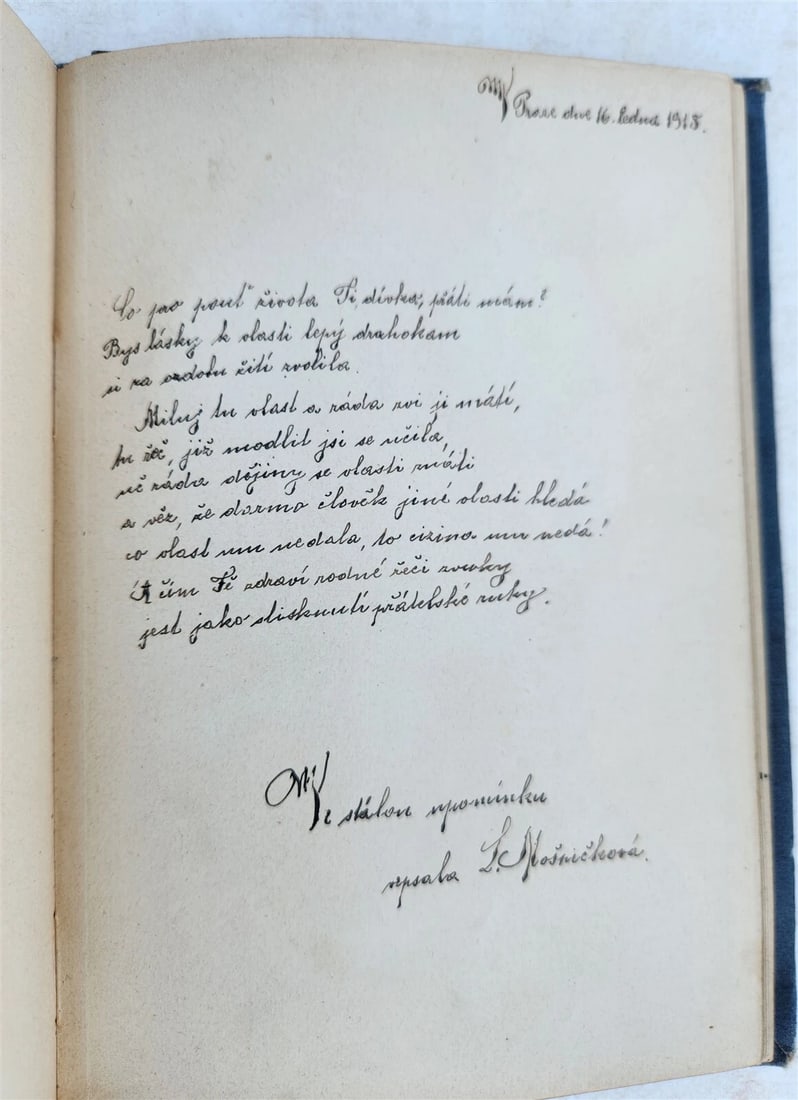 V Praze dne 16. ledna 1918.
Co pro pouť života Ti, dívka, přáti mám?
Bys lásky k vlasti lepý drahokam
si za ozdobu žití zvolila.
Miluj tu vlast a ráda zvi ji mátí,
tu řeč, již modlit jsi se učila,
uč ráda dějiny se vlasti znáti
a věz, že darmo člověk jiné vlasti hledá
co vlast mu nedala, to cizina mu nedá!
A čím Tě zdraví rodné řeči zvuky
jest jako stisknutí přátelské ruky.
Ve stálou upomínku
vepsala L. Mošničková.